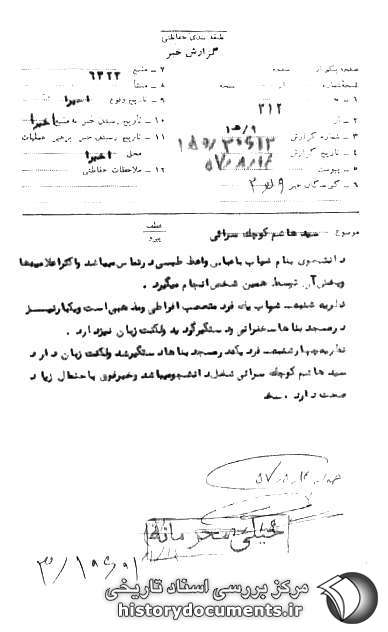 طبقه بندی حفاظتی
گزارش خبر
صفحه یک از صفحه
نسخه شماره از نسخه
۱ - به ۳۱۲
۲ - از
۳ - شماره گزارش
۴ - تاریخ گزارش ۵۷/۸/۱۴
۵ - پیوست
۶ - گیرندگان خبر
۷ - منبع ۶۳۲۲
۸ - منشأ
۹ - تاریخ وقوع اخیرا
۱۰ - تاریخ رسیدن خبر به منبع اخیرا
۱۱ - تاریخ رسیدن خبر برهبر عملیات
محل اخیرا
۱۲ - ملاحظات حفاظتی
موضوع سید هاشم کوچک سرائی
عطف
پیرو
دانشجوی بنام شهاب با عباس واعظ طبسی در تماس میباشد واکثر اعلامیه‌ها
وپخش آن توسط همین شخص انجام میگیرد.
نظریه شنبه. شهاب یک فرد متعصب افراطی ومذهبی است ویکبار نیز
در مسجد بناها سخنرانی ودستگیر گردید ولکنت زبان نیز دارد.
نظریه چهارشنبه. فرد یاد در مسجد بناها دستگیر شد ولکنت زبان دارد
سید هاشم کوچک سرائی شغل دانشجو میباشد وخبر فوق باحتمال زیاد
صحت دارد.
خیلی محرمانه
مرکز بررسی اسناد تاریخی
historydocuments.ir